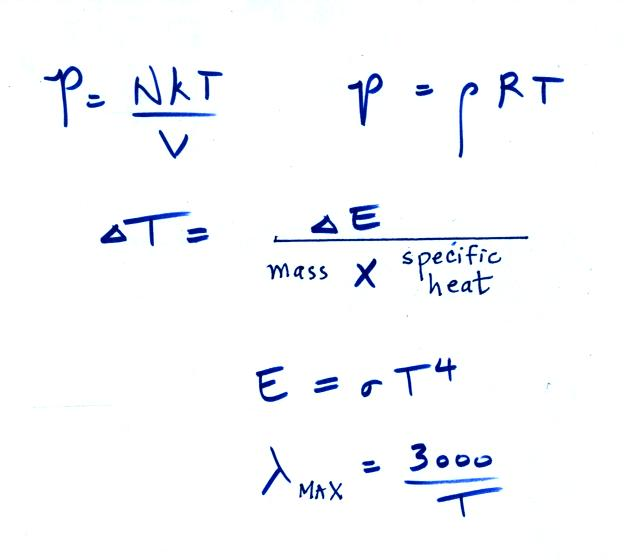 P = NkT / V    p = ρRT
ΔT = ΔE / mass X specific heat
E = σT⁴
λ MAX = 3000 / T